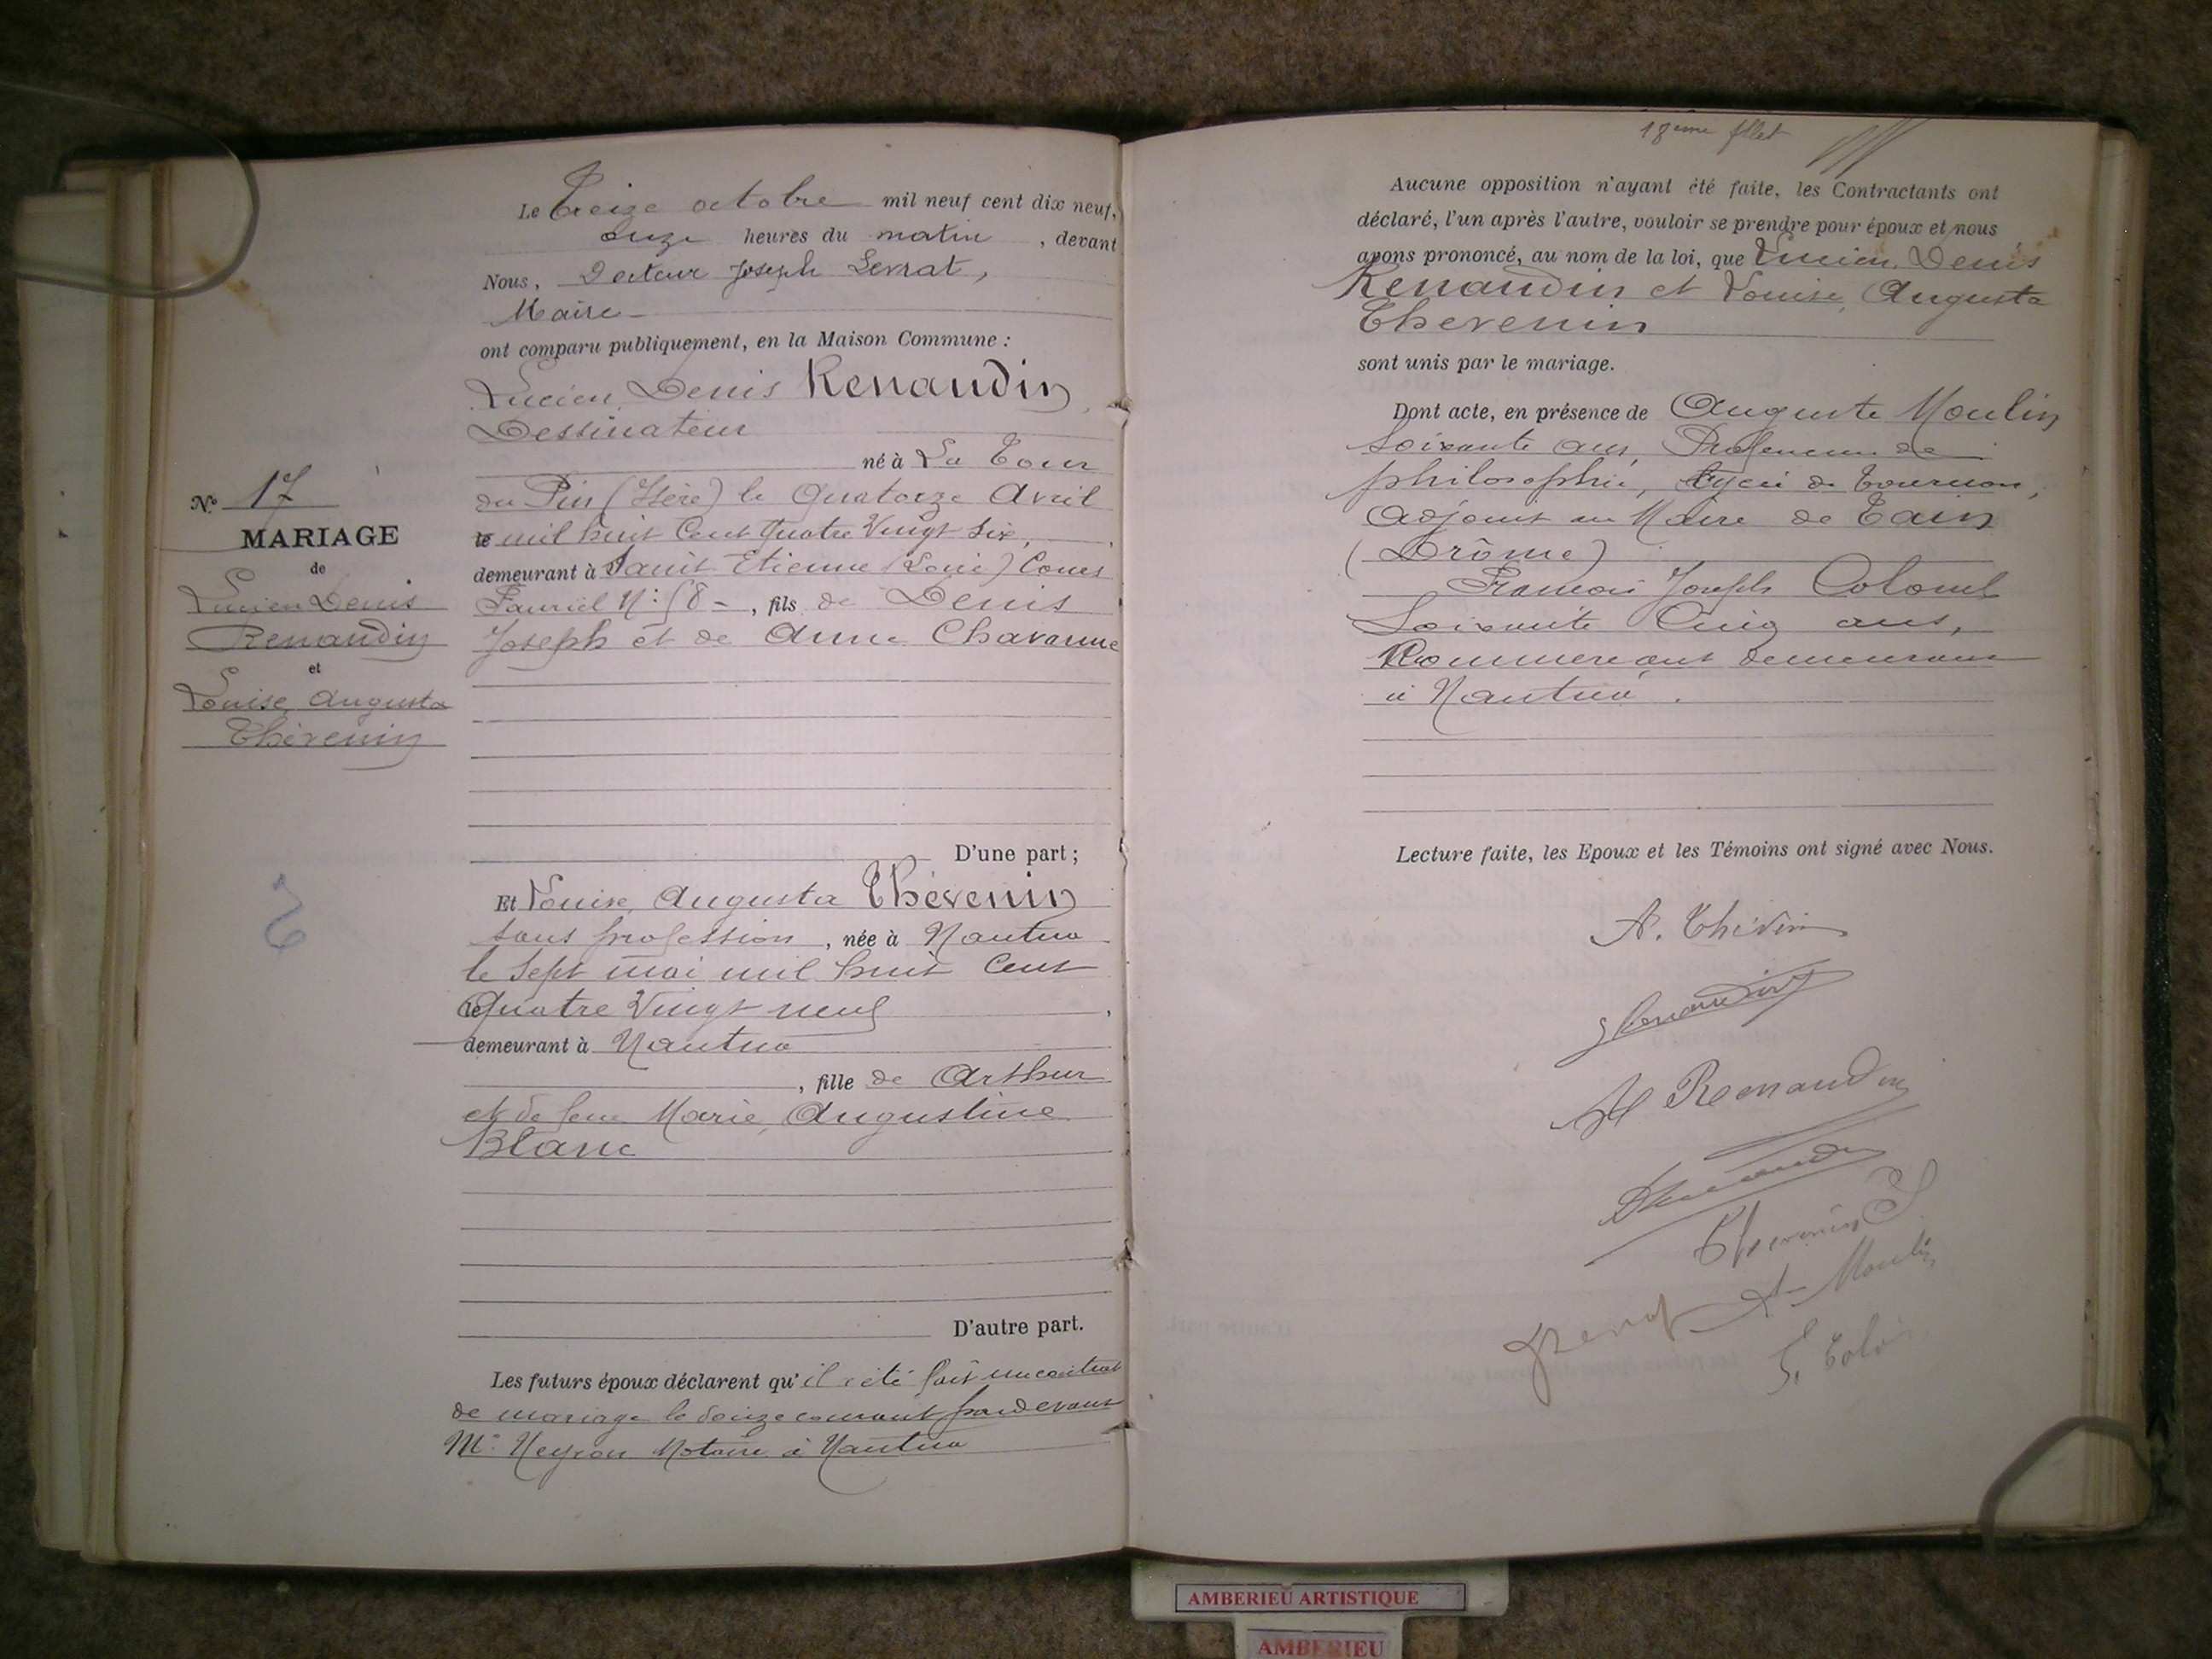 Le Treize octobre mil neuf cent dix neuf,
onze heures du matin, devant
Nous, Docteur Joseph Levrat,
Maire
ont comparu publiquement, en la Maison Commune :
Lucien Denis Renaudin
Dessinateur
né à La Tour
du Pin (Isère) le Quatorze Avril
le mil huit Cent Quatre Vingt Six,
demeurant à Saint Etienne (Loire) Cours
Fauriel N° 58 -, fils de Denis
Joseph et de Anne Chavanne
N° 17
MARIAGE
de
Lucien Denis
Renaudin
et
Louise Augusta
Thévenin
D'une part ;
Et Louise, Augusta Thévenin
sans profession, née à Nantua
le Sept mai mil huit Cent
le Quatre Vingt neuf,
demeurant à Nantua
, fille de Arthur
et de feue Marie, Augustine
Blanc
D'autre part.
Les futurs époux déclarent qu'il a été fait un contrat
de mariage le douze courant pardevant
Me Neyron Notaire à Nantua
18ème fllet
Aucune opposition n'ayant été faite, les Contractants ont
déclaré, l'un après l'autre, vouloir se prendre pour époux et nous
avons prononcé, au nom de la loi, que Lucien, Denis
Renaudin et Louise, Augusta
Thevenin
sont unis par le mariage.
Dont acte, en présence de Auguste Moulin
soixante ans, Professeur de
philosophie, Lycée de Tournon,
Adjoint au Maire de Tain
(Drôme)
François Joseph
Soixante Cinq ans,
Commerçant demeurant
à Nantua.
Lecture faite, les Epoux et les Témoins ont signé avec Nous.
A. Thévenin
Renaudin
Renaudin
Renaudin
Thevenin
A. Moulin
AMBERIEU ARTISTIQUE
AMBERIEU